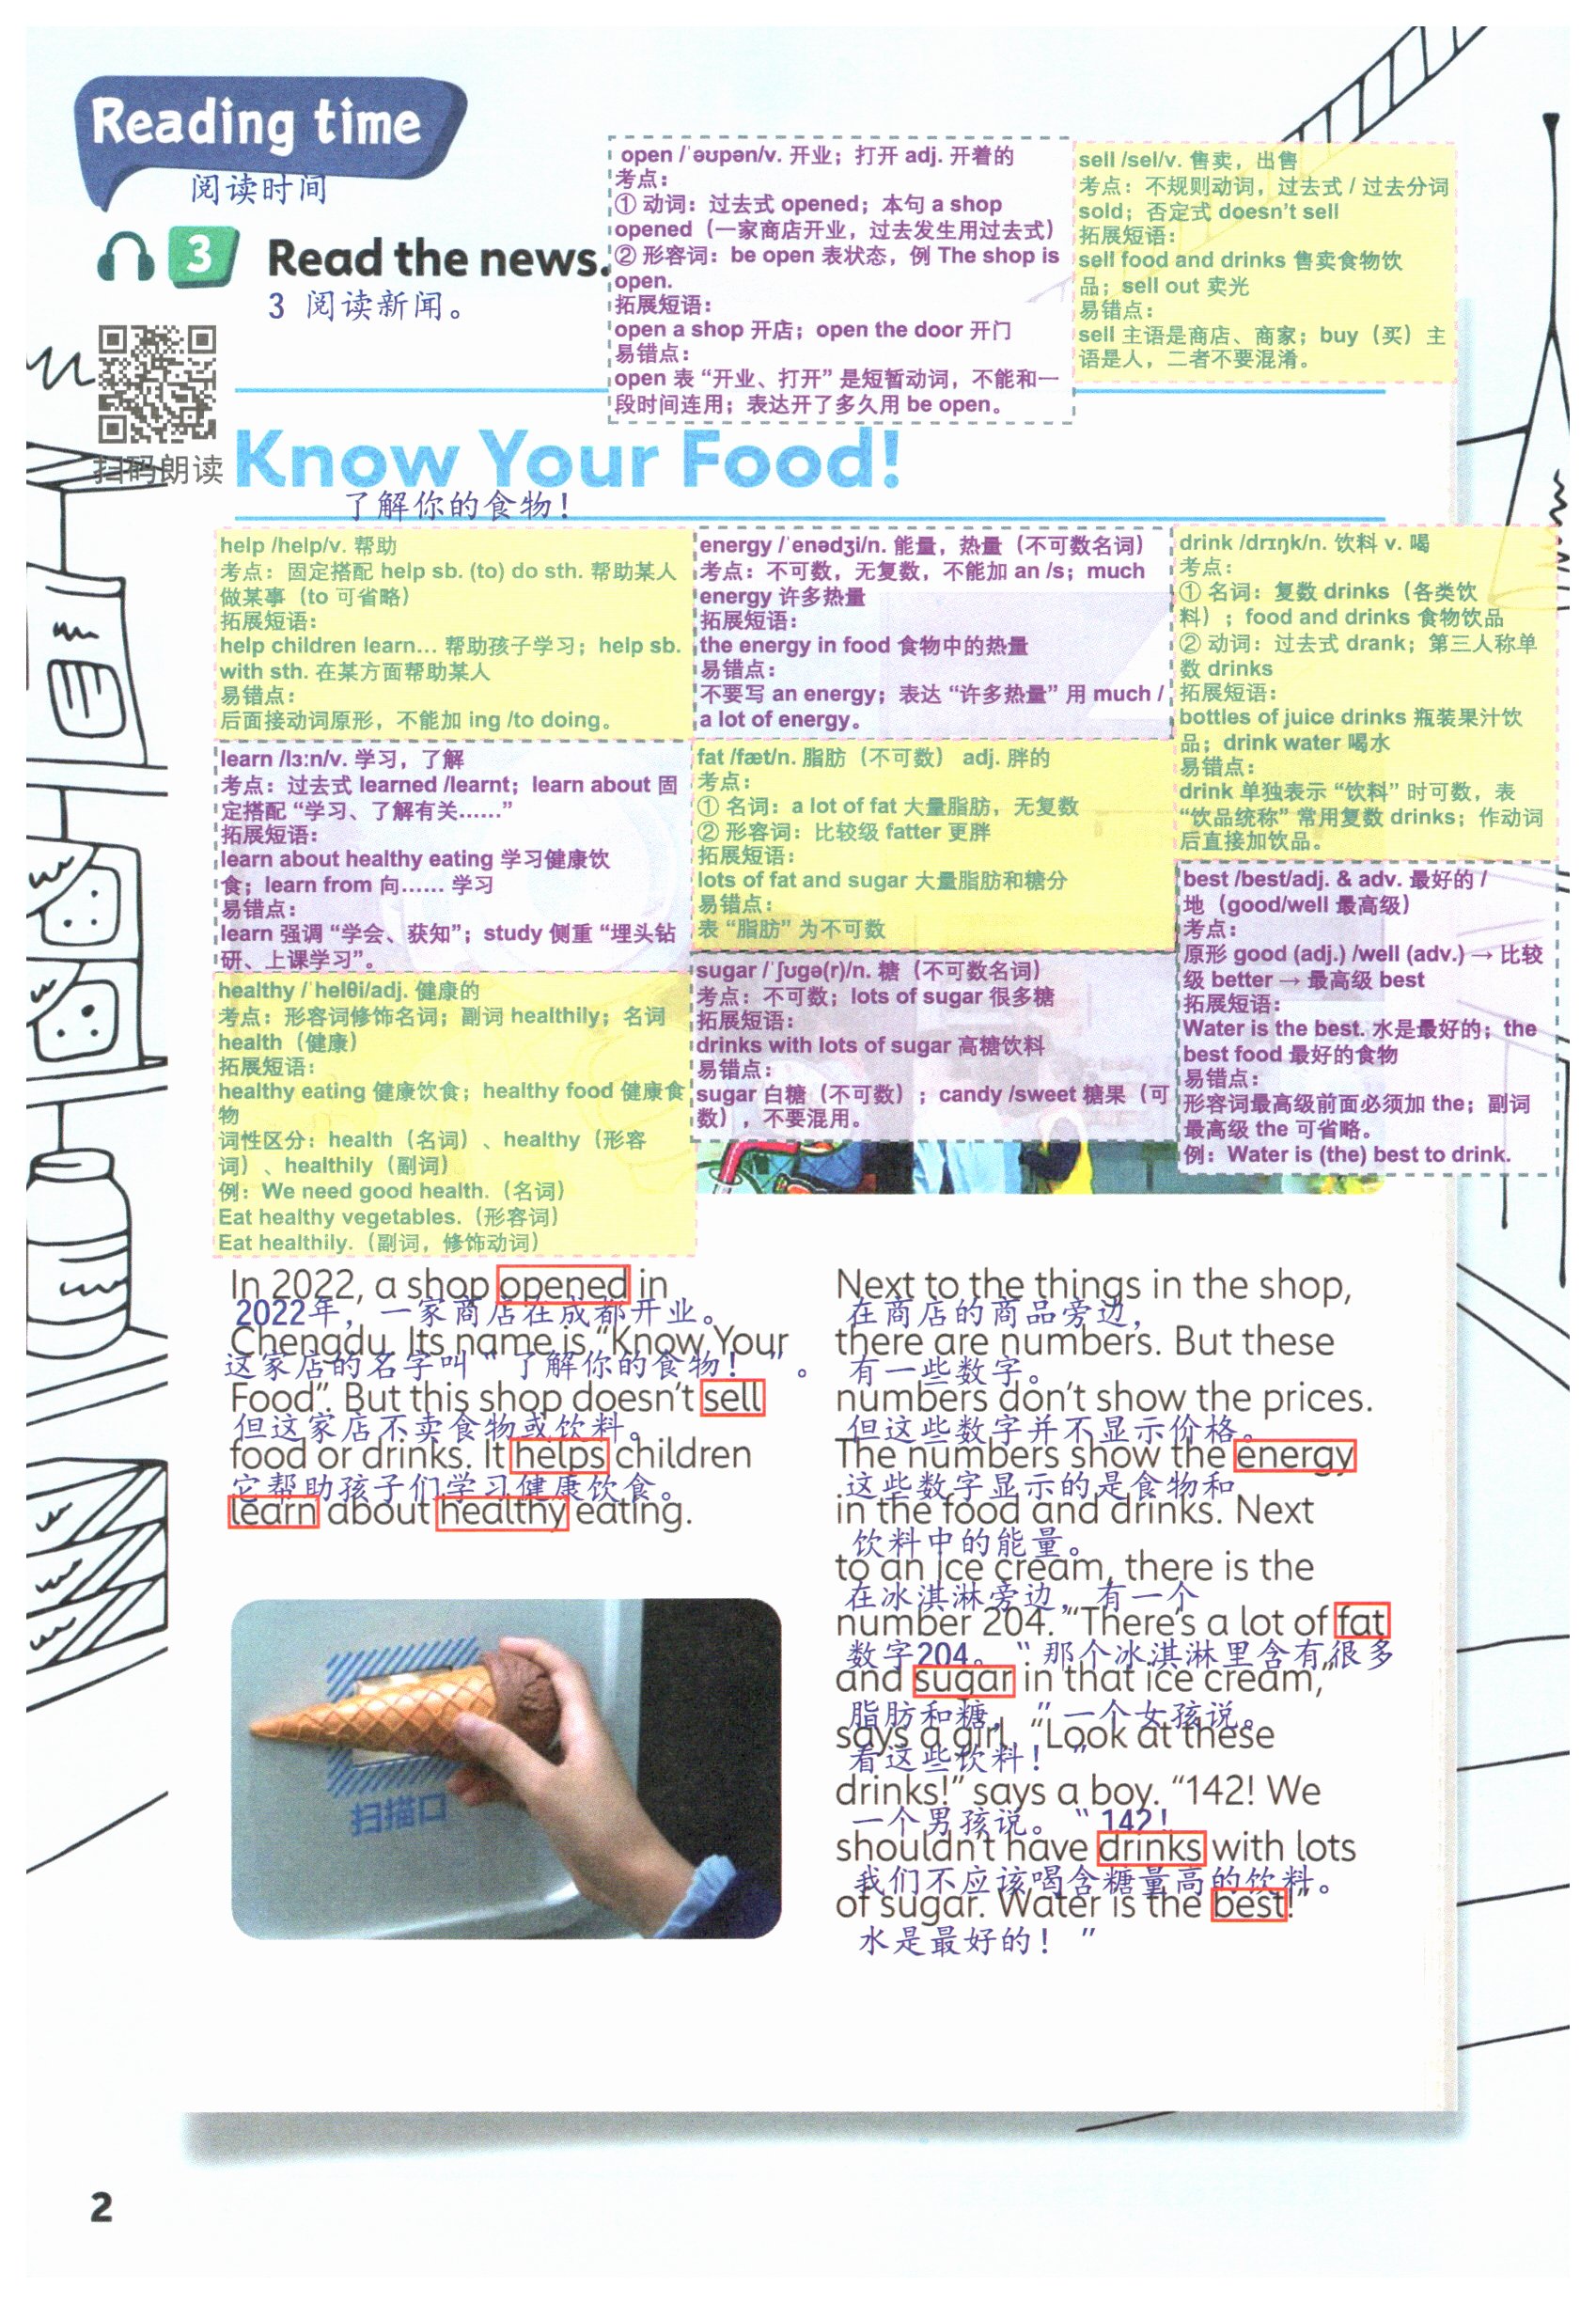 Reading time
阅读时间
3
Read the news.
3 阅读新闻。
扫码朗读
open /ˈəʊpən/v. 开业；打开 adj. 开着的
考点：
① 动词：过去式 opened；本句 a shop
opened（一家商店开业，过去发生用过去式）
② 形容词：be open 表状态，例 The shop is
open.
拓展短语：
open a shop 开店；open the door 开门
易错点：
open 表 “开业、打开” 是短暂动词，不能和一
段时间连用；表达开了多久用 be open。
sell /sel/v. 售卖，出售
考点：不规则动词，过去式 / 过去分词
sold；否定式 doesn't sell
拓展短语：
sell food and drinks 售卖食物饮
品；sell out 卖光
易错点：
sell 主语是商店、商家；buy（买）主
语是人，二者不要混淆。
Know Your Food!
了解你的食物！
help /help/v. 帮助
考点：固定搭配 help sb. (to) do sth. 帮助某人
做某事（to 可省略）
拓展短语：
help children learn... 帮助孩子学习；help sb.
with sth. 在某方面帮助某人
易错点：
后面接动词原形，不能加 ing /to doing。
learn /lɜːn/v. 学习，了解
考点：过去式 learned /learnt；learn about 固
定搭配 “学习、了解有关……”
拓展短语：
learn about healthy eating 学习健康饮
食；learn from 向…… 学习
易错点：
learn 强调 “学会、获知”；study 侧重 “埋头钻
研、上课学习”。
healthy /ˈhelθi/adj. 健康的
考点：形容词修饰名词；副词 healthily；名词
health（健康）
拓展短语：
healthy eating 健康饮食；healthy food 健康食
物
词性区分：health（名词）、healthy（形容
词）、healthily（副词）
例：We need good health.（名词）
Eat healthy vegetables.（形容词）
Eat healthily.（副词，修饰动词）
energy /ˈenədʒi/n. 能量，热量（不可数名词）
考点：不可数，无复数，不能加 an /s；much
energy 许多热量
拓展短语：
the energy in food 食物中的热量
易错点：
不要写 an energy；表达 “许多热量” 用 much /
a lot of energy。
fat /fæt/n. 脂肪（不可数） adj. 胖的
考点：
① 名词：a lot of fat 大量脂肪，无复数
② 形容词：比较级 fatter 更胖
拓展短语：
lots of fat and sugar 大量脂肪和糖分
易错点：
表 “脂肪” 为不可数
sugar /ˈʃʊgə(r)/n. 糖（不可数名词）
考点：不可数；lots of sugar 很多糖
拓展短语：
drinks with lots of sugar 高糖饮料
易错点：
sugar 白糖（不可数）；candy /sweet 糖果（可
数），不要混用。
drink /drɪŋk/n. 饮料 v. 喝
考点：
① 名词：复数 drinks（各类饮
料）；food and drinks 食物饮品
② 动词：过去式 drank；第三人称单
数 drinks
拓展短语：
bottles of juice drinks 瓶装果汁饮
品；drink water 喝水
易错点：
drink 单独表示 “饮料” 时可数，表
“饮品统称” 常用复数 drinks；作动词
后直接加饮品。
best /best/adj. & adv. 最好的 /
地（good/well 最高级）
考点：
原形 good (adj.) /well (adv.) → 比较
级 better → 最高级 best
拓展短语：
Water is the best. 水是最好的；the
best food 最好的食物
易错点：
形容词最高级前面必须加 the；副词
最高级 the 可省略。
例：Water is (the) best to drink.
In 2022, a shop opened in
2022年，一家商店在成都开业。
Chengdu. Its name is “Know Your
这家店的名字叫“了解你的食物！”。
Food”. But this shop doesn't sell
但这家店不卖食物或饮料。
food or drinks. It helps children
它帮助孩子们学习健康饮食。
learn about healthy eating.
扫描口
Next to the things in the shop,
在商店的商品旁边，
there are numbers. But these
有一些数字。
numbers don't show the prices.
但这些数字并不显示价格。
The numbers show the energy
这些数字显示的是食物和
in the food and drinks. Next
饮料中的能量。
to an ice cream, there is the
在冰淇淋旁边，有一个
number 204. “There's a lot of fat
数字204。“那个冰淇淋里含有很多
and sugar in that ice cream,”
脂肪和糖，”一个女孩说。
says a girl. “Look at these
看这些饮料！”
drinks!” says a boy. “142! We
一个男孩说。“142！
shouldn't have drinks with lots
我们不应该喝含糖量高的饮料。
of sugar. Water is the best!”
水是最好的！”
2